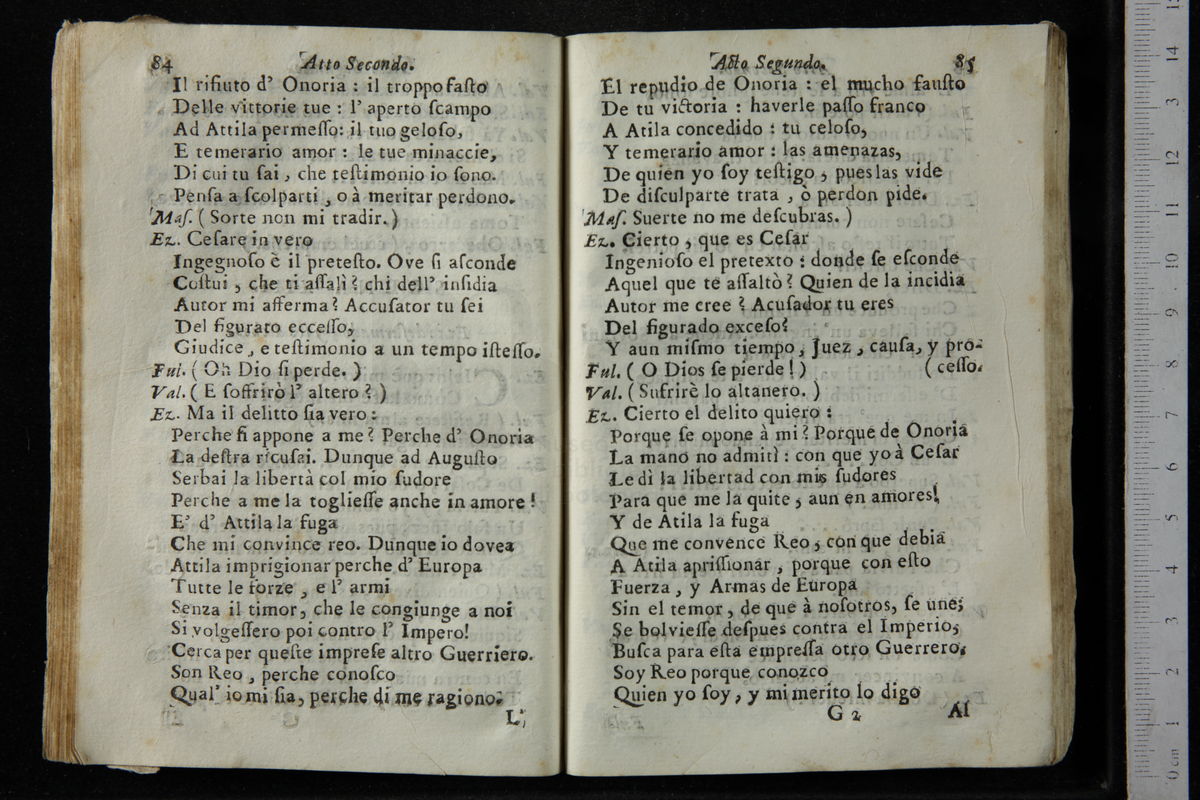 84
Atto Secondo.
Il rifiuto d' Onoria : il troppo faſto
Delle vittorie tue : l' aperto ſcampo
Ad Attila permeſſo: il tuo geloſo,
E temerario amor : le tue minaccie,
Di cui tu ſai , che teſtimonio io ſono.
Penſa a ſcolparti , o à meritar perdono.
Maſ. ( Sorte non mi tradir. )
Ez. Ceſare in vero
Ingegnoſo è il preteſto. Ove ſi aſconde
Coſtui , che ti aſſalì ? chi dell' inſidia
Autor mi afferma? Accuſator tu ſei
Del figurato ecceſſo,
Giudice , e teſtimonio a un tempo iſteſſo.
Ful. ( Oh Dio ſi perde. )
Val. ( E ſoffrirò l' altero ? )
Ez. Ma il delitto ſia vero :
Perche ſi appone a me ? Perche d' Onoria
La deſtra ricuſai. Dunque ad Auguſto
Serbai la libertà col mio ſudore
Perche a me la toglieſſe anche in amore !
E' d' Attila la fuga
Che mi convince reo. Dunque io dovea
Attila imprigionar perche d' Europa
Tutte le forze , e l' armi
Senza il timor, che le congiunge a noi
Si volgeſſero poi contro l' Impero!
Cerca per queſte impreſe altro Guerriero.
Son Reo , perche conoſco
Qual' io mi ſia, perche di me ragiono.
L'
Acto Segundo.
85
El repudio de Onoria : el mucho fauſto
De tu victoria : haverle paſſo franco
A Atila concedido : tu celoſo,
Y temerario amor : las amenazas,
De quien yo ſoy teſtigo , pues las vide
De diſculparte trata , ò perdon pide.
Maſ. Suerte no me deſcubras. )
Ez. Cierto , que es Ceſar
Ingenioſo el pretexto : donde ſe eſconde
Aquel que te aſſaltò? Quien de la incidia
Autor me cree ? Acuſador tu eres
Del figurado exceſo?
Y aun miſmo tiempo, Juez , cauſa, y pro-
Ful. ( O Dios ſe pierde ! ) ( ceſſo.
Val. ( Sufrirè lo altanero. )
Ez. Cierto el delito quiero :
Porque ſe opone à mi ? Porque de Onoria
La mano no admitì : con que yo à Ceſar
Le dì la libertad con mis ſudores
Para que me la quite , aun en amores!
Y de Atila la fuga
Que me convence Reo , con que debia
A Atila apriſſionar , porque con eſto
Fuerza , y Armas de Europa
Sin el temor , de que à noſotros, ſe une;
Se bolvieſſe deſpues contra el Imperio;
Buſca para eſta empreſſa otro Guerrero,
Soy Reo porque conozco
Quien yo ſoy, y mi merito lo digo
G 2
Al